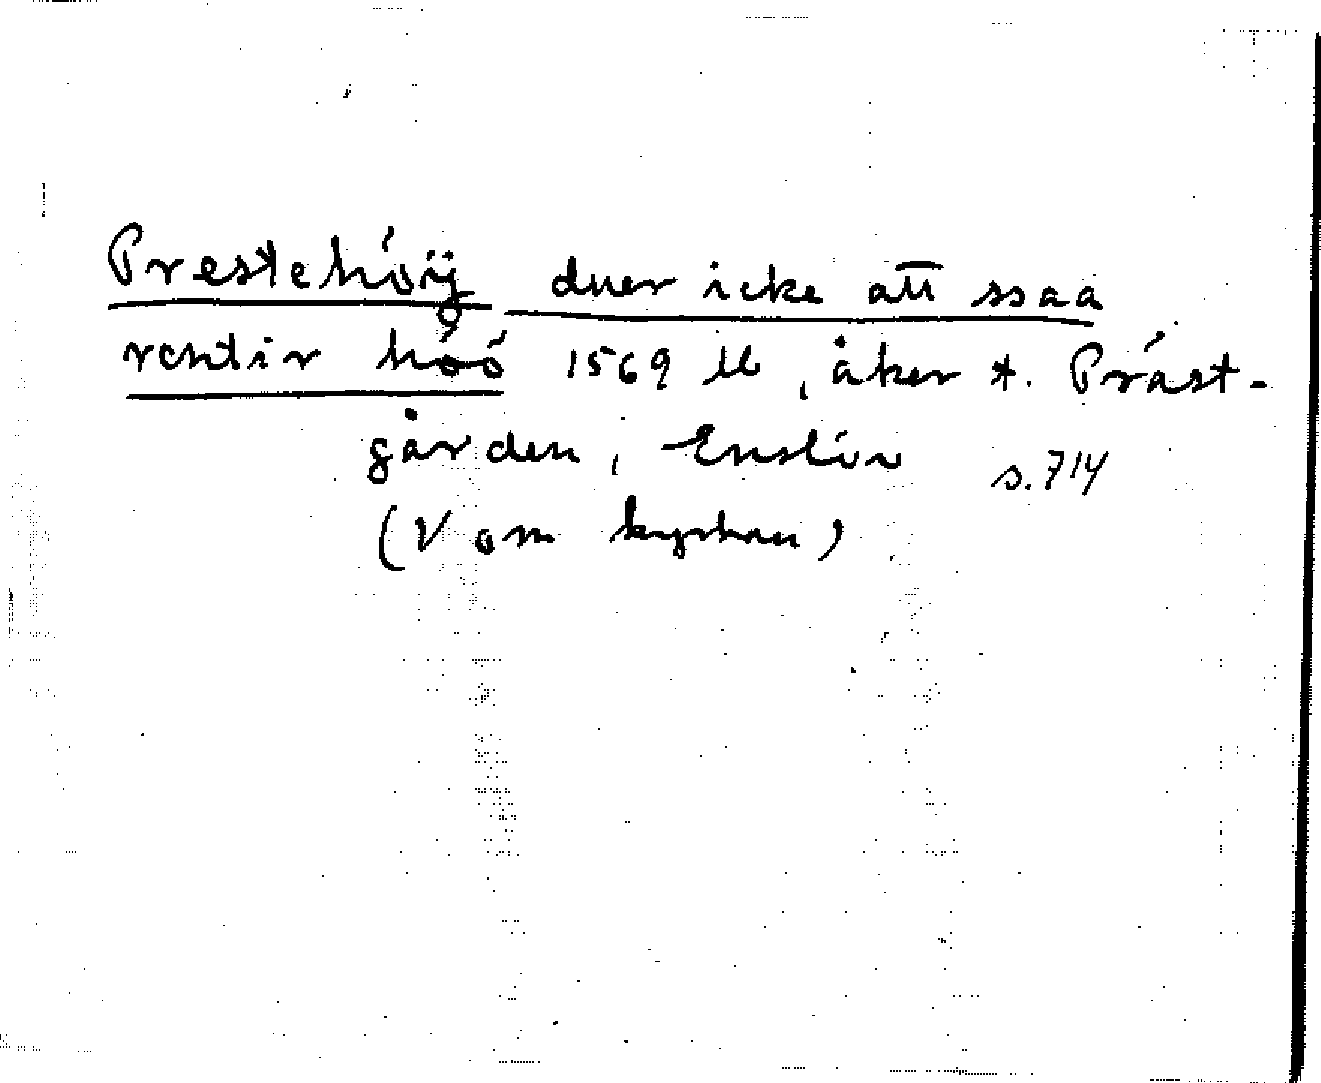 Prestehöÿ duer icke att ssaa
rentir höö 1569 ll, åker t. Präst-
gården, Enslöv s. 714
(V om kyrkan)